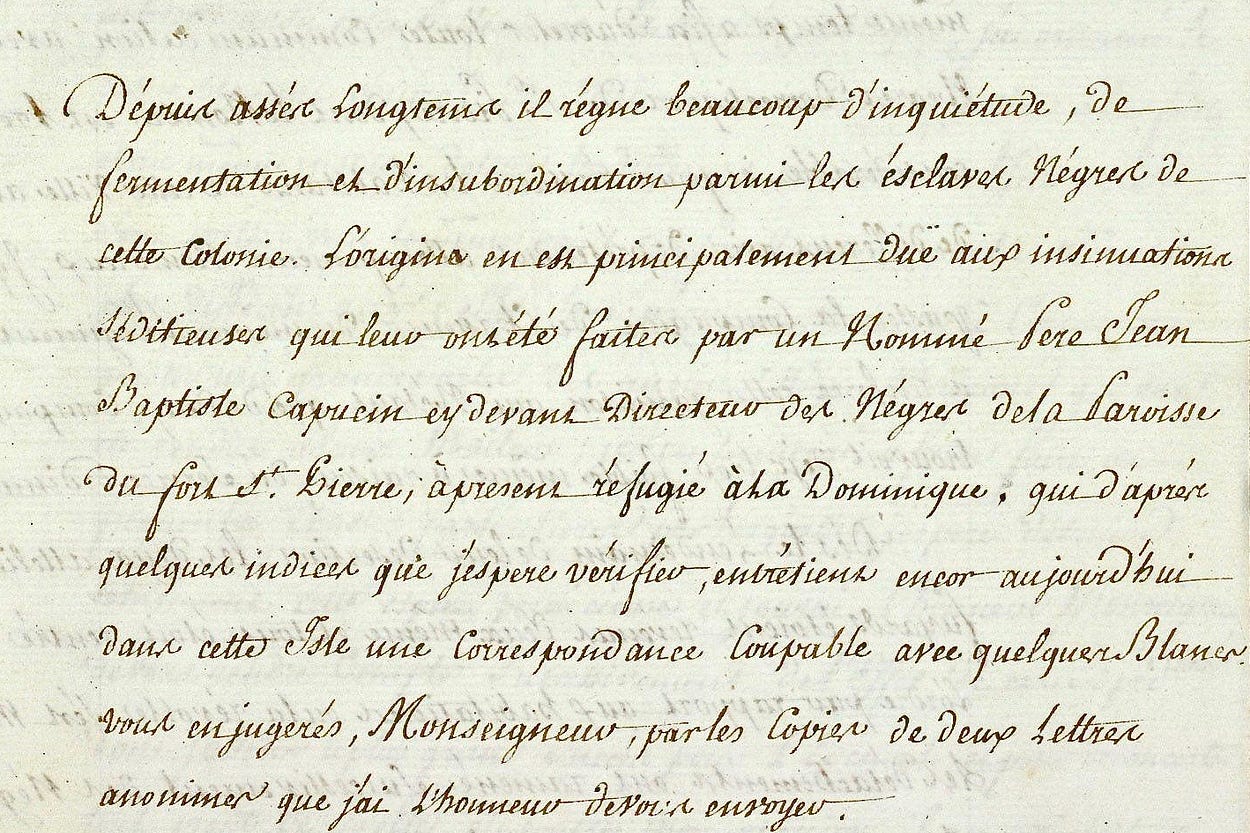 Dépuis assés Longtems il régne beaucoup d'inquiétude, de
fermentation et d'insubordination parmi les ésclaves Négres de
cette Colonie. L'origine en est principalement duë aux insinuations
séditieuses qui leur ont été faites par un Nommé Pere Jean
Baptiste Capucin cy devant Directeur des Négres de la Paroisse
du fort St. Pierre, àpresent réfugié à la Dominique. qui d'áprés
quelques indices que j'éspere vérifier, entrétient encor aujourd'hui
dans cette Isle une Correspondance Coupable avec quelques Blancs.
vous en jugerés, Monseigneur, par les Copies de deux Lettres
anonimes que j'ai L'honneur de vous envoyer.